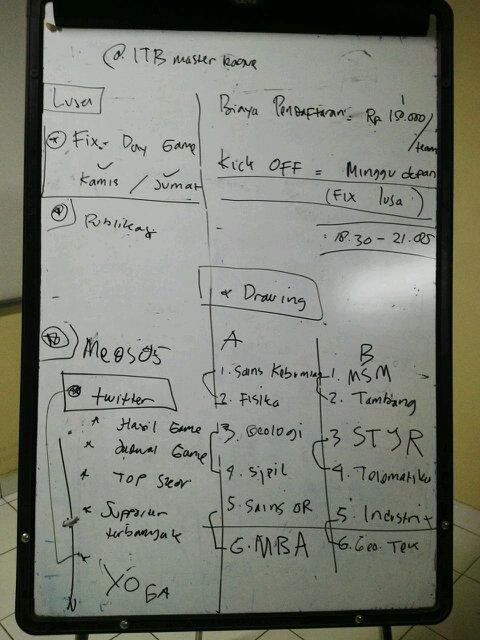 @ ITB master
Lusa
Fix - Day Game
Kamis / Jumat
Biaya Pendaftaran = Rp 150.000 / team
Kick OFF = Minggu depan
(Fix lusa)
: 18.30 - 21.00
Publikasi
* Drawing
A
1. Sains Kebumian
2. Fisika
3. Geologi
4. Sipil
5. Sains OR
6. MBA
B
1. MSM
2. Tambang
3
4.
5. Industri
6. Geo. Tek
twitter
* Hasil Game
* Jadwal Game
* TOP Skor
* Supporter terbanyak
*
YOGA